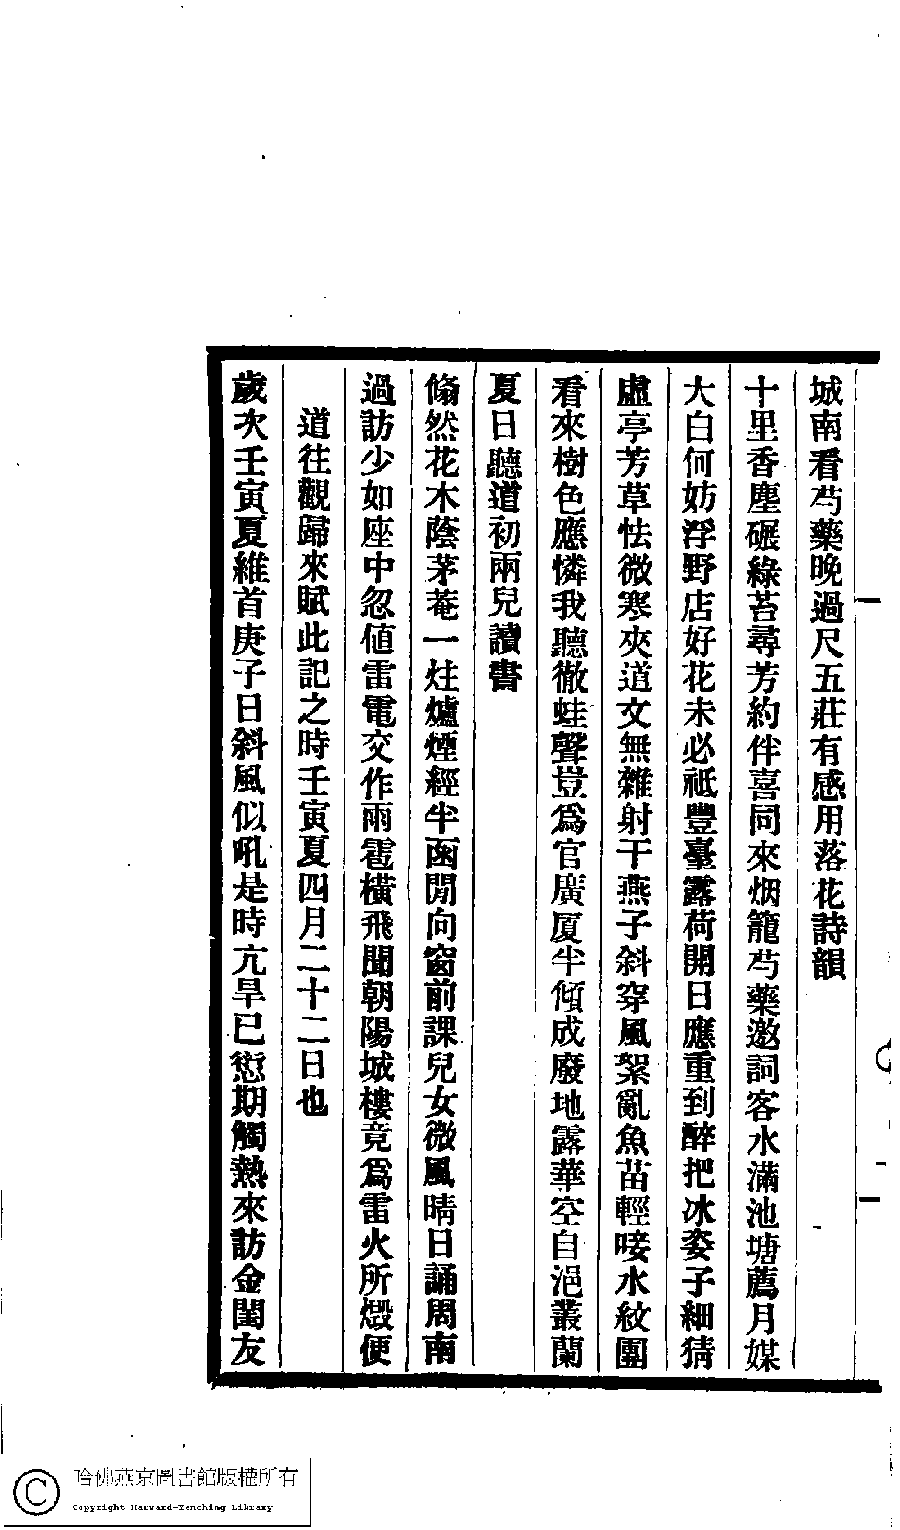 城南看芍藥晚過尺五莊有感用落花詩韻
十里香塵碾綠苔尋芳約伴喜同來烟籠芍藥邀詞客水滿池塘薦月媒
大白何妨浮野店好花未必祗豐臺露荷開日應重到醉把冰姿子細猜
虛亭芳草怯微寒夾道文無雜射干燕子斜穿風絮亂魚苗輕唼水紋團
看來樹色應憐我聽徹蛙聲豈爲官廣厦半傾成廢地露華空自浥叢蘭
夏日聽道初兩兒讀書
翛然花木蔭茅菴一炷爐煙經半函閒向窗前課兒女微風晴日誦周南
過訪少如座中忽値雷電交作雨雹橫飛聞朝陽城樓竟爲雷火所燬便
道往觀歸來賦此記之時壬寅夏四月二十二日也
歲次壬寅夏維首庚子日斜風似吼是時亢旱已愆期觸熱來訪金閨友
哈佛燕京圖書館版權所有
Copyright Harvard-Yenching Library